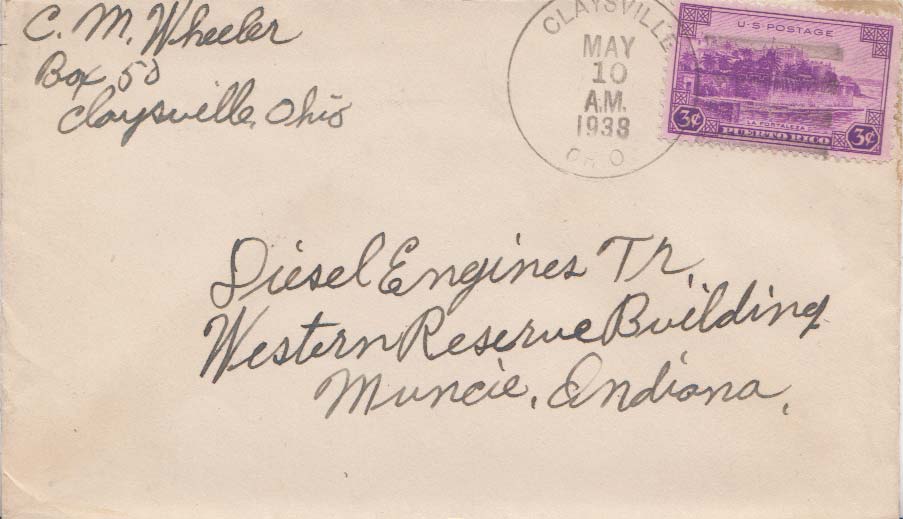 C. M. Wheeler
Box 50
Claysville, Ohio
CLAYSVILLE
MAY
10
A.M.
1938
OHIO
U·S·POSTAGE
LA FORTALEZA
3¢ PUERTO RICO 3¢
Diesel Engines Tr.
Western Reserve Building
Muncie, Indiana,